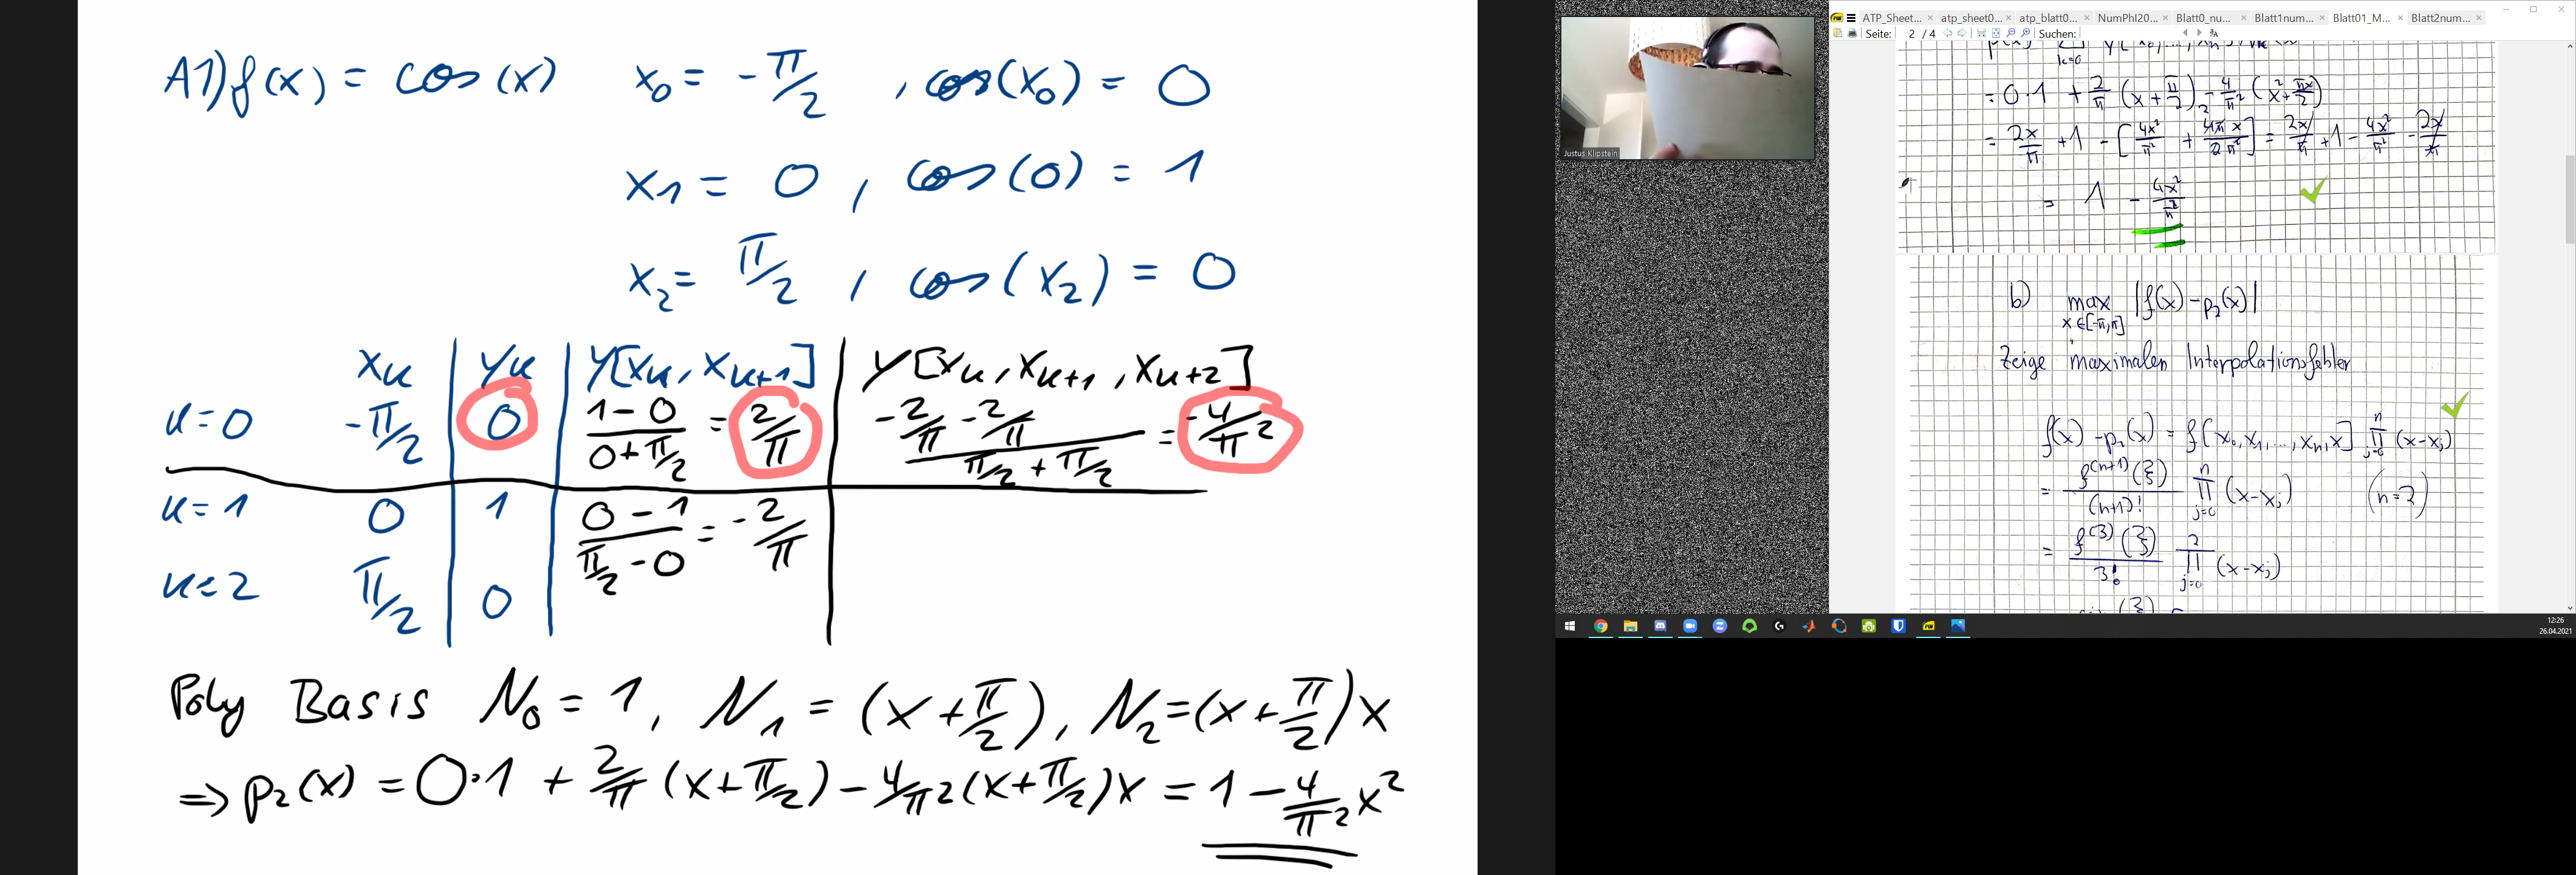 A1) f(x) = cos(x) x₀ = -π/2 , cos(x₀) = 0
x₁ = 0 , cos(0) = 1
x₂ = π/2 , cos(x₂) = 0
xₖ yₖ y[xₖ, xₖ₊₁] y[xₖ, xₖ₊₁, xₖ₊₂]
k=0 -π/2 0 (1-0)/(0+π/2) = 2/π (-2/π - 2/π)/(π/2 + π/2) = -4/π²
k=1 0 1 (0-1)/(π/2 - 0) = -2/π
k=2 π/2 0
Poly Basis N₀ = 1, N₁ = (x+π/2), N₂ = (x+π/2)x
⇒ p₂(x) = 0·1 + 2/π (x+π/2) - 4/π² (x+π/2)x = 1 - 4/π² x²
Justus Klipstein
ATP_Sheet... atp_sheet0... atp_blatt0... NumPhI20... Blatt0_nu... Blatt1num... Blatt01_M... Blatt2num...
Seite: 2 / 4 Suchen:
= 0·1 + 2/π (x+π/2) - 4/π² (x²+πx/2)
= 2x/π + 1 - [4x²/π² + 4πx/2π²] = 2x/π + 1 - 4x²/π² - 2x/π
= 1 - 4x²/π²
b) max |f(x) - p₂(x)|
x∈[-π,π]
Zeige maximalen Interpolationsfehler
f(x) - p₂(x) = f[x₀,x₁,...,xₙ,x] ∏ⁿⱼ₌₀ (x-xⱼ)
= f⁽ⁿ⁺¹⁾(ξ)/(n+1)! ∏ⁿⱼ₌₀ (x-xⱼ) (n=2)
= f⁽³⁾(ξ)/3! ∏²ⱼ₌₀ (x-xⱼ)
12:26
26.04.2021